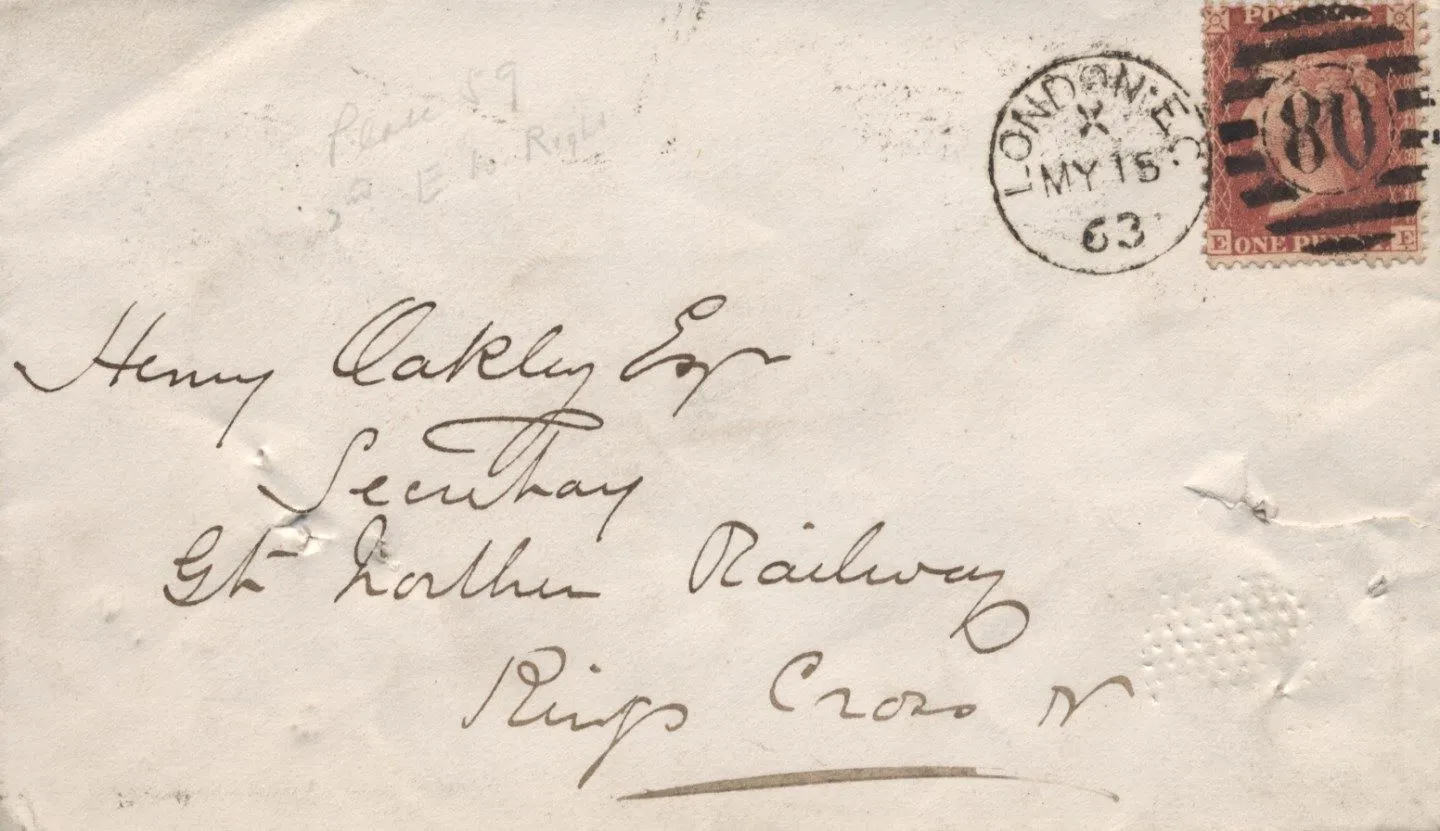 Plate 59
E to Right
LONDON·E.C
X
MY 15
63
POSTAGE
80
E ONE PENNY E
Henry Oakley Esqr
Secretary
Gt Northern Railway
Kings Cross N